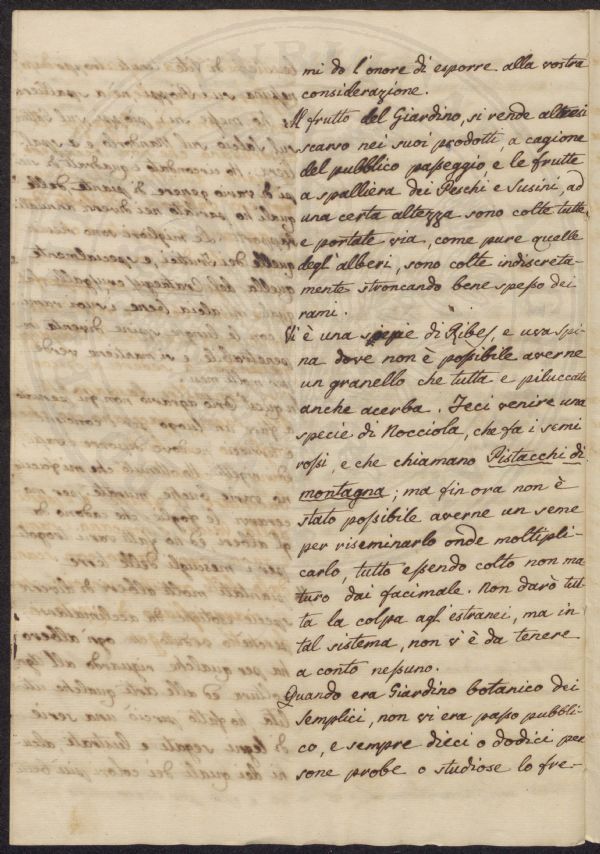 mi do l'onore di esporre alla vostra
considerazione.
Il frutto del Giardino, si rende altresi
scarso nei suoi prodotti, a cagione
del pubblico passeggio, e le frutte
a spalliera dei Peschi e Susini, ad
una certa altezza sono colte tutte,
e portate via, come pure quelle
degl'alberi, sono colte indiscreta-
mente stroncando bene spesso dei
rami.
Vi è una siepe di Ribes, e uva spi-
na dove non è possibile averne
un granello che tutta e piluccata
anche acerba. Feci venire una
specie di Nocciola, che fa i semi
rossi, e che chiamano Pistacchi di
montagna; ma fin ora non è
stato possibile averne un seme
per riseminarlo onde moltipli-
carlo, tutto essendo colto non ma
turo dai facimale. Non darò tut-
ta la colpa agl'estranei, ma in
tal sistema, non vi è da tenere
a conto nessuno.
Quando era Giardino botanico dei
Semplici, non vi era passo pubbli-
co, e sempre dieci o dodici per
sone probe o studiose lo fre-